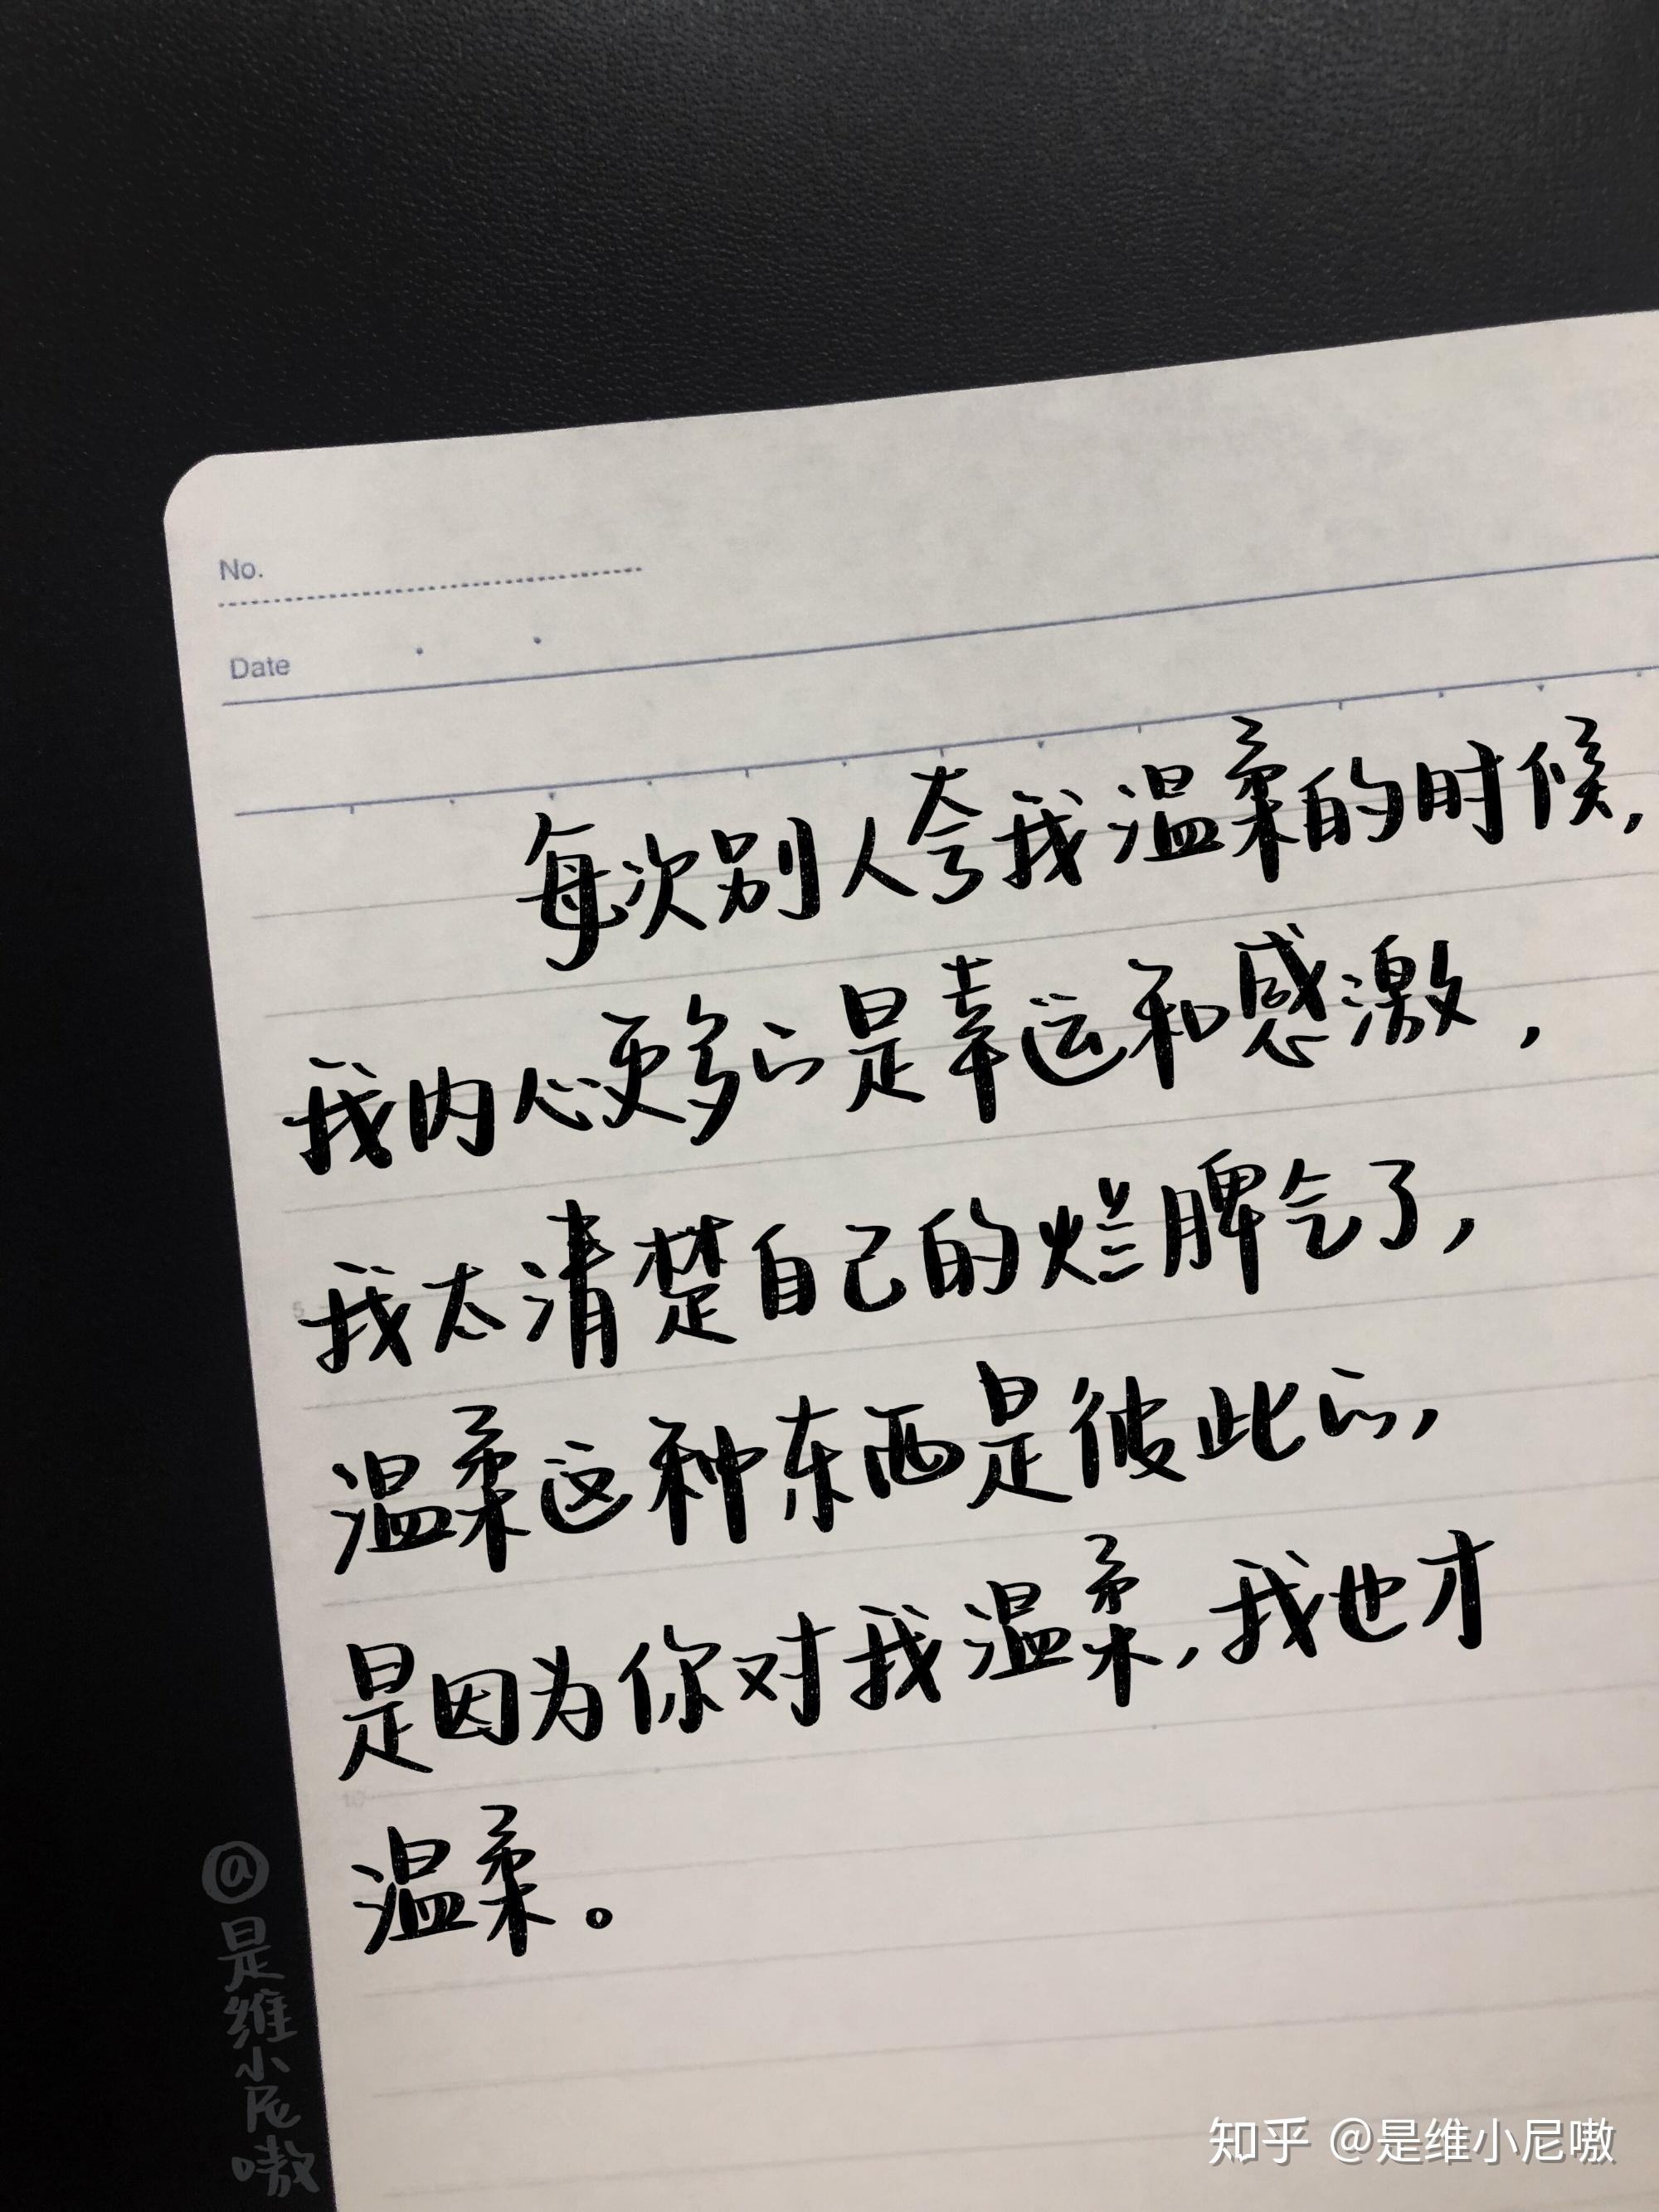 No.
Date
每次别人夸我温柔的时候,
我内心更多的是幸运和感激,
我太清楚自己的烂脾气了,
温柔这种东西是彼此的,
是因为你对我温柔,我也才
温柔。
5
10
@是维小尼嗷
知乎 @是维小尼嗷